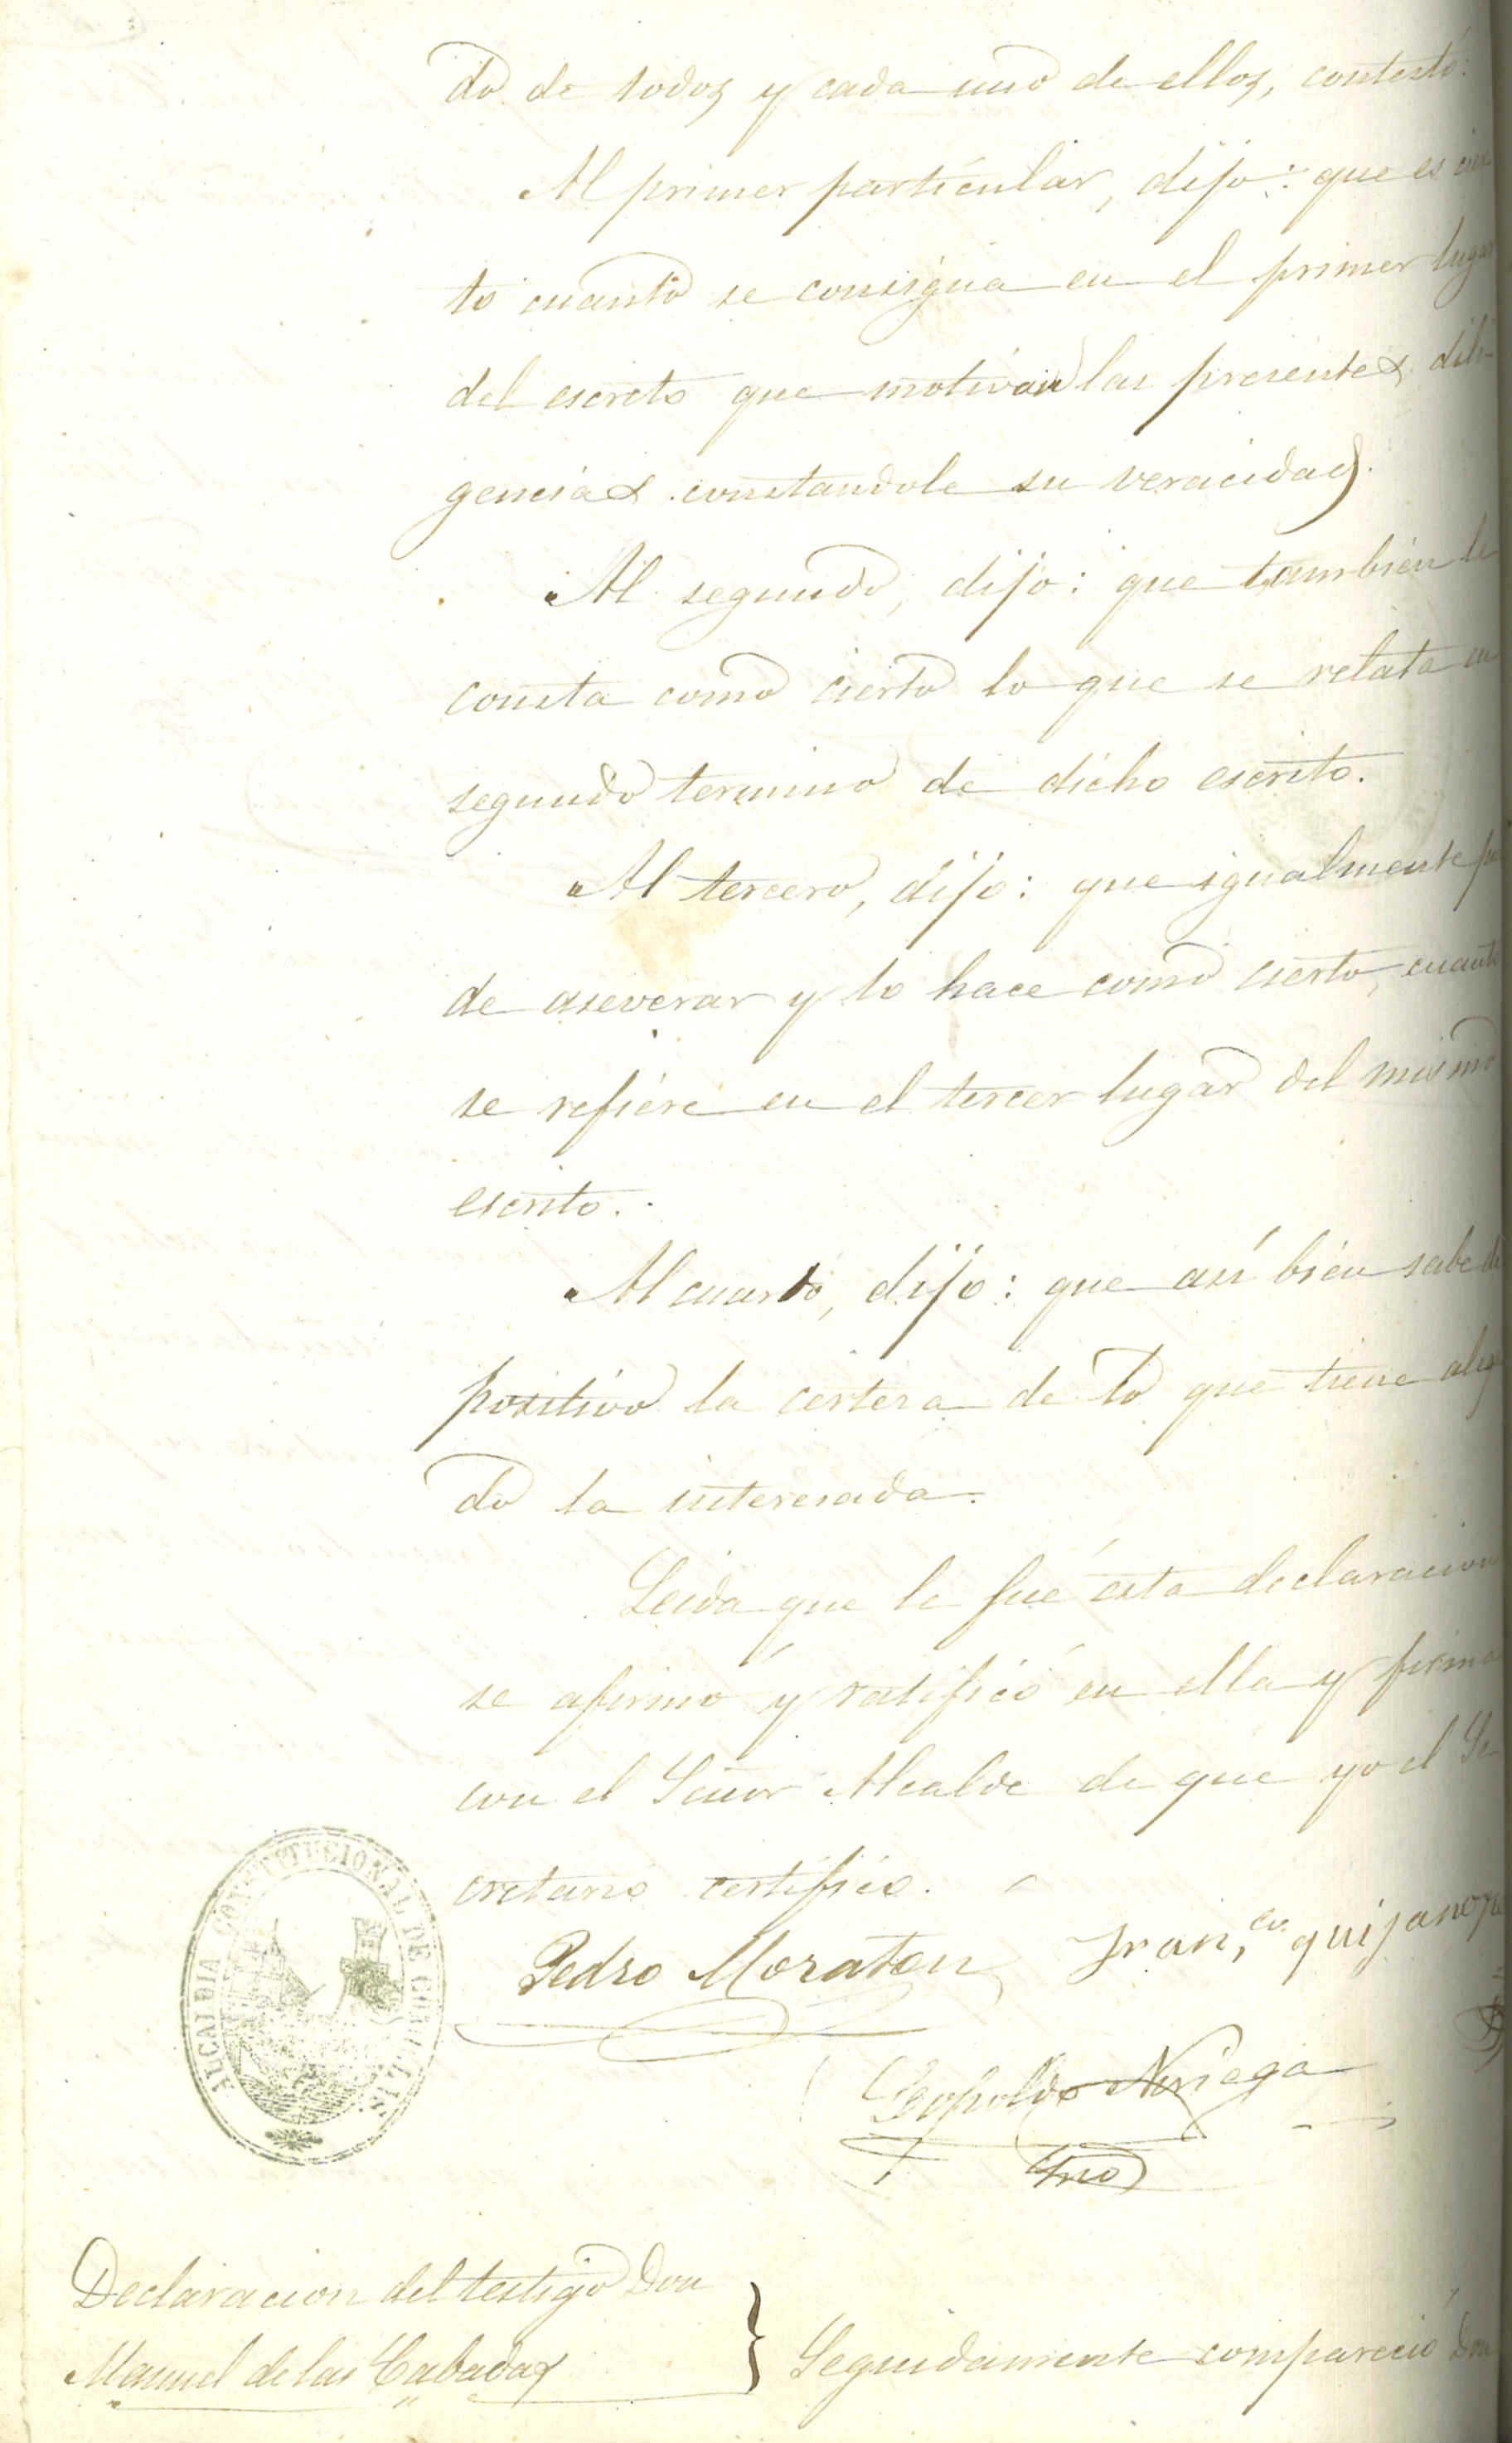 do de todos y cada uno de ellos, contestó:
Al primer particular, dijo: que es cier
to cuanto se consigna en el primer lugar
del escrito que motivan las presentes dili-
gencias constandole su veracidad.
Al segundo, dijo: que tambien le
consta como cierto lo que se relata en
segundo termino de dicho escrito.
Al tercero, dijo: que igualmente pue
de aseverar y lo hace como cierto, cuanto
se refiere en el tercer lugar del mismo
escrito.
Al cuarto, dijo: que así bien sabe de
positivo la certeza de lo que tiene alega
do la interesada.
Leida que le fué ésta declaracion
se afirmó y ratificó en ella y firma
con el Señor Alcalde de que yo el Se
cretario certifico.
Pedro Moraton Fran,co quijano
ALCALDIA CONSTITUCIONAL DE COMILLAS
Leopoldo Noriega
Srio
Declaracion del testigo Don
Manuel de las Cabadas } Seguidamente compareció Don